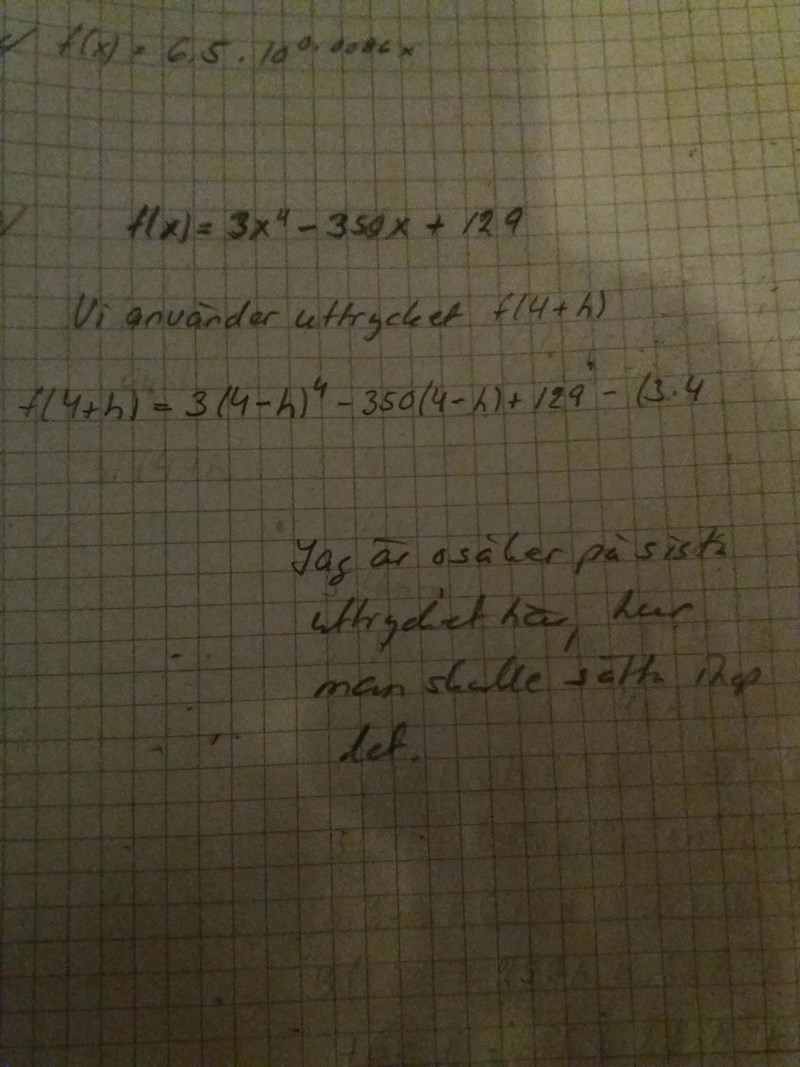 f(x) = 6.5 · 10^0.0086x
f(x) = 3x⁴ - 350x + 129
Vi använder uttrycket f(4+h)
f(4+h) = 3(4-h)⁴ - 350(4-h) + 129 - (3·4
Jag är osäker på sista
uttrycket här, hur
man skulle sätta ihop
det.